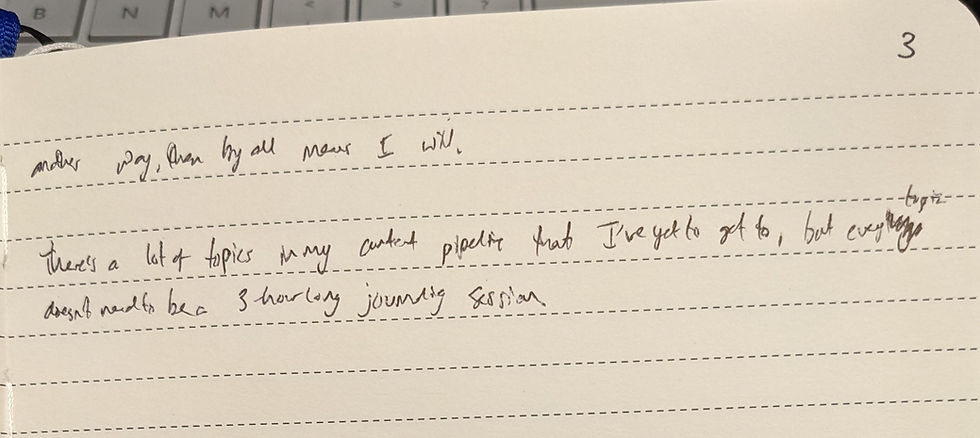 B N M < > ?
3
another way, then by all means I will.
There's a lot of topics in my content pipeline that I've yet to get to, but every topic
doesn't need to be a 3 hour long journaling session.